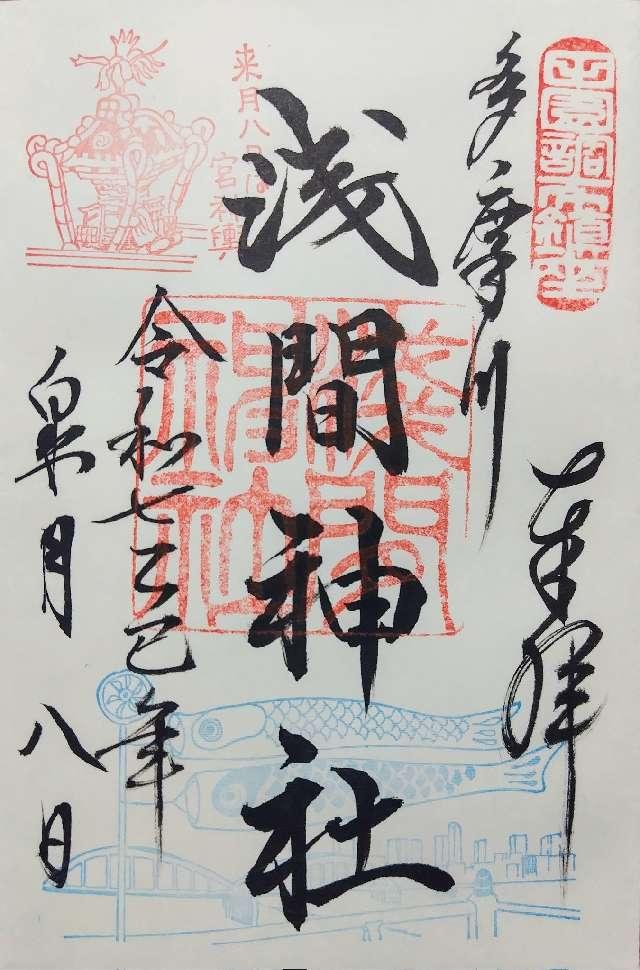 奉拝
多摩川
浅間神社
令和七乙巳年
皐月八日
来月八日は
宮神輿
浅間神社